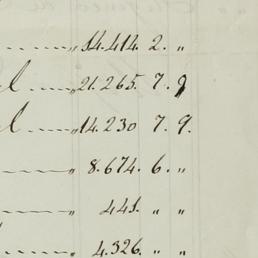 „ 14.414. 2. „
l „ 21.265. 7. 9
l „ 14.230 7. 9.
„ 8.674. 6. „
„ 441. „ „
„ 4.326. „ „